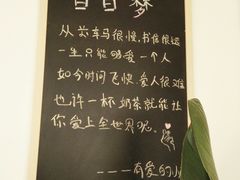 白日梦
从前车马很慢,书信很远
一生只能够爱一个人
如今时间飞快,爱人很难
也许一杯奶茶就能让
你爱上全世界呢。
---有爱的小